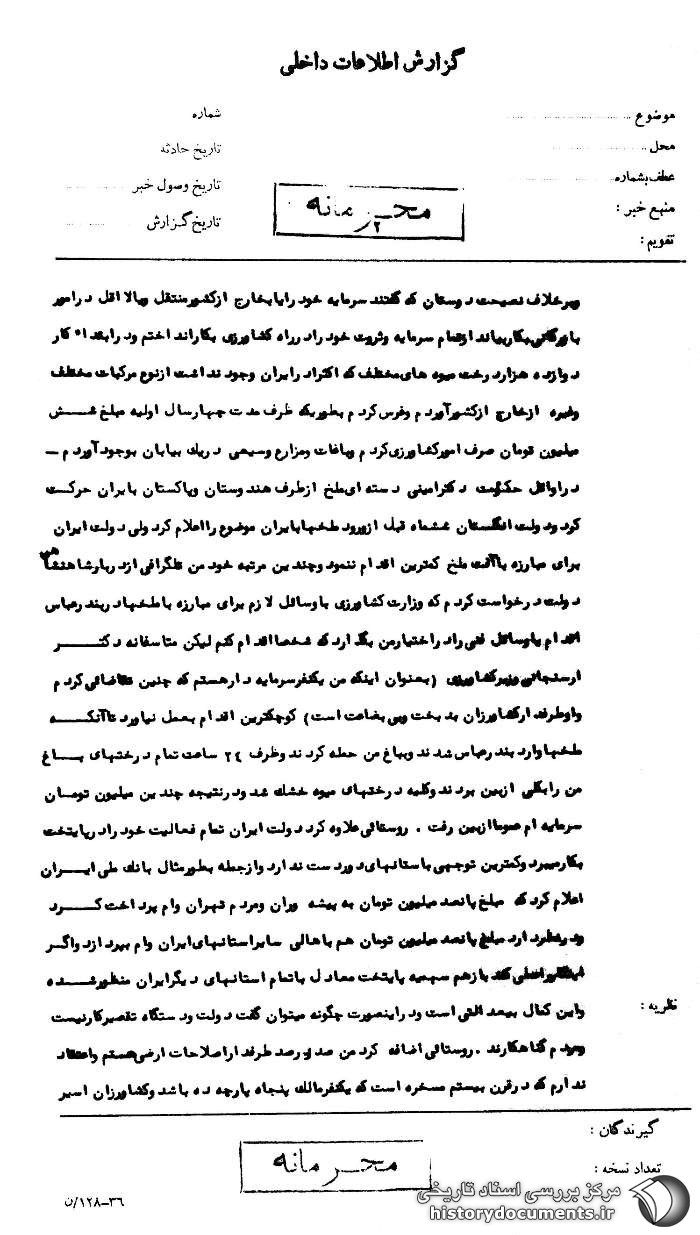 گزارش اطلاعات داخلی
موضوع
شماره
محل
تاریخ حادثه
عطف بشماره
تاریخ وصول خبر
منبع خبر :
تاریخ گزارش
تقویم :
محرمانه
۲
وبرخلاف نصیحت دوستان که گفتند سرمایه خود رایابخارج ازکشورمنتقل ویالااقل درامور
بازرگانی بکاربیاندازتمام سرمایه وثروت خود رادرراه کشاورزی بکارانداختم ودرابتداء کار
دوازده هزاردرخت میوه های مختلف که اکثراً درایران وجود نداشت ازنوع مرکبات مختلف
وغیره ازخارج ازکشورآوردم وغرس کردم بطوریکه ظرف مدت چهارسال اولیه مبلغ شش
میلیون تومان صرف امورکشاورزی کردم وباغات ومزارع وسیعی دریک بیابان بوجودآوردم ــ
دراوائل حکومت دکترامینی دسته ای ملخ ازطرف هندوستان وپاکستان بایران حرکت
کرد ودولت انگلستان ششماه قبل ازورود ملخهابایران موضوع رااعلام کرد ولی دولت ایران
برای مبارزه باآفت ملخ کمترین اقدام ننمود وچندین مرتبه خود من تلگرافی ازدربارشاهنشاهی
دولت درخواست کردم که وزارت کشاورزی باوسائل لازم برای مبارزه باملخهادربندرعباس
اقدام یاوسائل فنی رادراختیارمن بگذارد که شخصااقدام کنم لیکن متاسفانه دکتر
ارسنجانی وزیرکشاورزی (بعنوان اینکه من یکنفرسرمایه دارهستم که چنین تقاضائی کردم
واوطرفدارکشاورزان بدبخت وبی بضاعت است) کوچکترین اقدام بعمل نیاورد تاآنکه
ملخهاوارد بندرعباس شدند وبباغ من حمله کردند وظرف ۲۴ ساعت تمام درختهای باغ
من رابکلی ازبین بردند وکلیه درختهای میوه خشک شد ودرنتیجه چندین میلیون تومان
سرمایه ام عموماازبین رفت . روستائی علاوه کرد دولت ایران تمام فعالیت خود رادرپایتخت
بکارمیبرد وکمترین توجهی باستانهای دوردست ندارد وازجمله بطورمثال بانک ملی ایران
اعلام کرد که مبلغ پانصد میلیون تومان به پیشه وران ومردم تهران وام پرداخت کرد
ودرنظردارد مبلغ پانصد میلیون تومان هم باهالی سایراستانهای ایران وام بپردازد واگر
بازهم سهمیه پایتخت معادل باتمام استانهای دیگرایران منظورشده
واین کمال بیعدالتی است ودراینصورت چگونه میتوان گفت دولت ودستگاه تقصیرکارنیست
ومردم گناهکارند . روستائی اضافه کرد من صد درصد طرفداراصلاحات ارضی هستم واعتقاد
ندارم که درقرن بیستم مسخره است که یکنفرمالک پنجاه پارچه ده باشد وکشاورزان اسیر
نظریه :
گیرندگان :
تعداد نسخه :
محرمانه
۳۶-۱۲۸/ن
مرکز بررسی اسناد تاریخی
historydocuments.ir